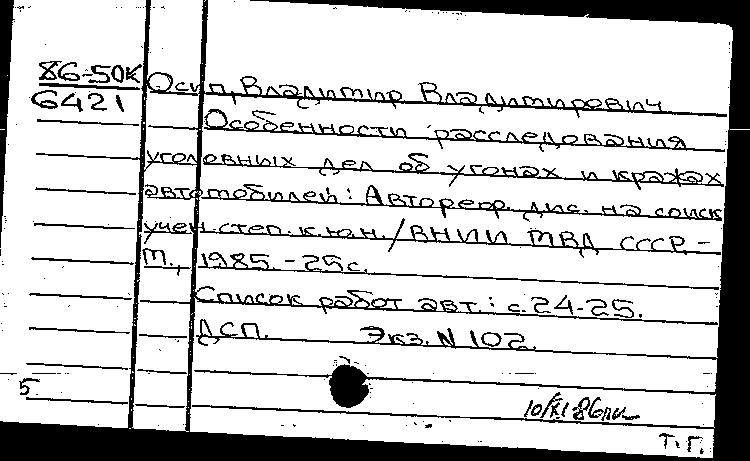 86-50К Осип, Владимир Владимирович
6421
Особенности расследования
уголовных дел об угонах и кражах
автомобилей: Автореф. дис. на соиск
учен. степ. к.ю.н. / ВНИИ МВД СССР. -
М., 1985. - 25 с.
Список работ авт.: с. 24-25.
ДСП. Экз. N 102.
5
10/XI 86
Т.Г.